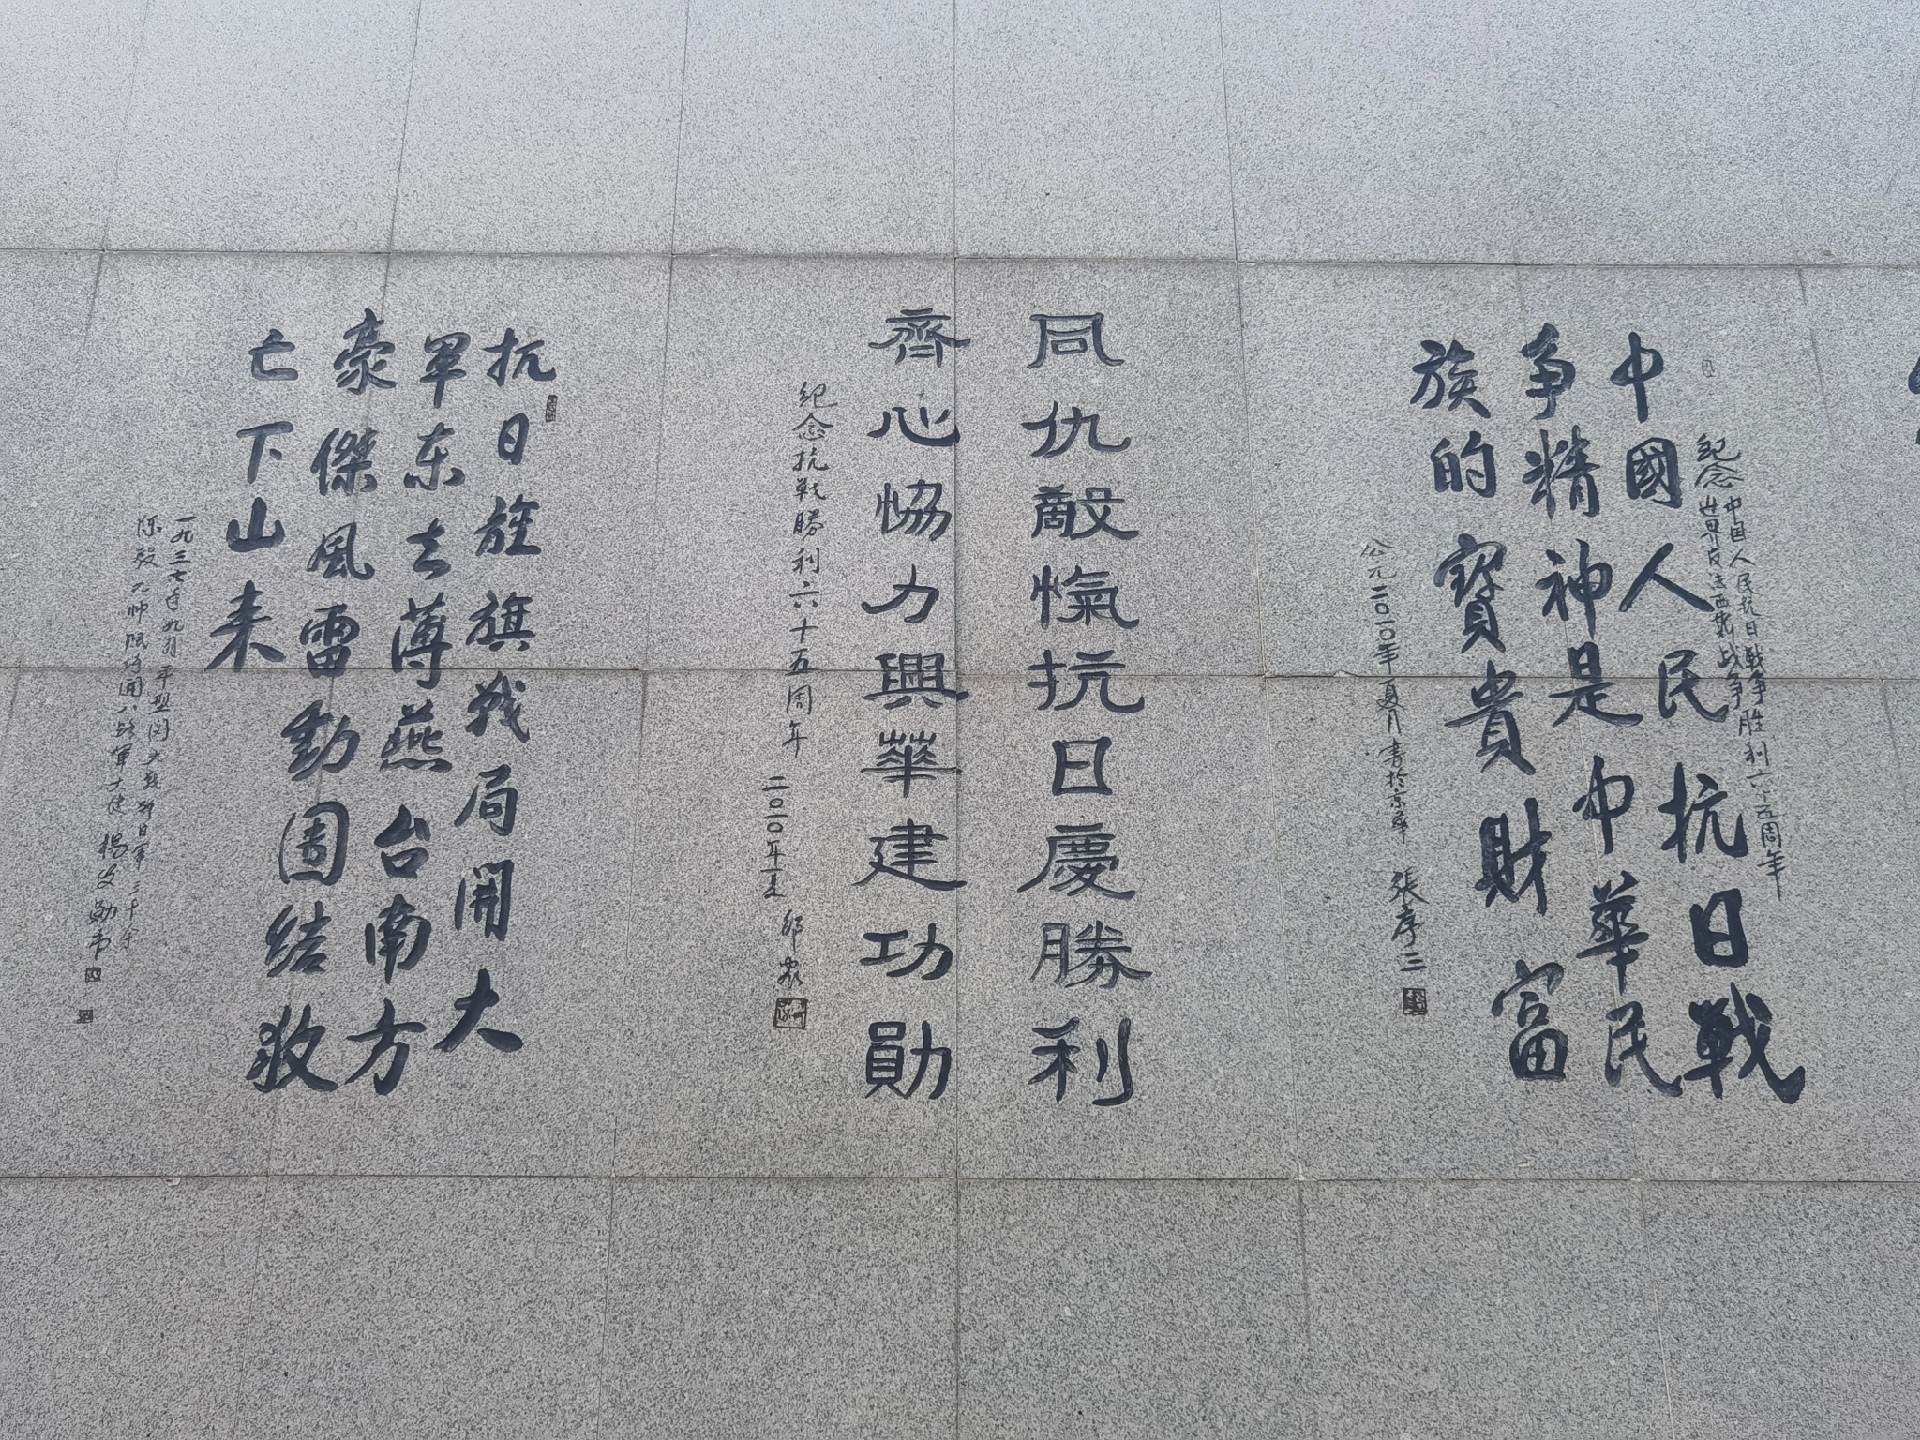 纪念 中国人民抗日戰争胜利六十五周年
世界反法西斯战争
中國人民抗日戰
争精神是中華民
族的寳貴財富
公元二〇一〇年夏月書於京華 張序三
同仇敵愾抗日慶勝利
齊心恊力興華建功勛
紀念抗戰勝利六十五周年 二〇一〇年夏
抗日旌旗战局開大
軍东去薄燕台南方
豪傑風雷動團结救
亡下山来
一九三七年九月平型関大
陈毅元帅 八路軍